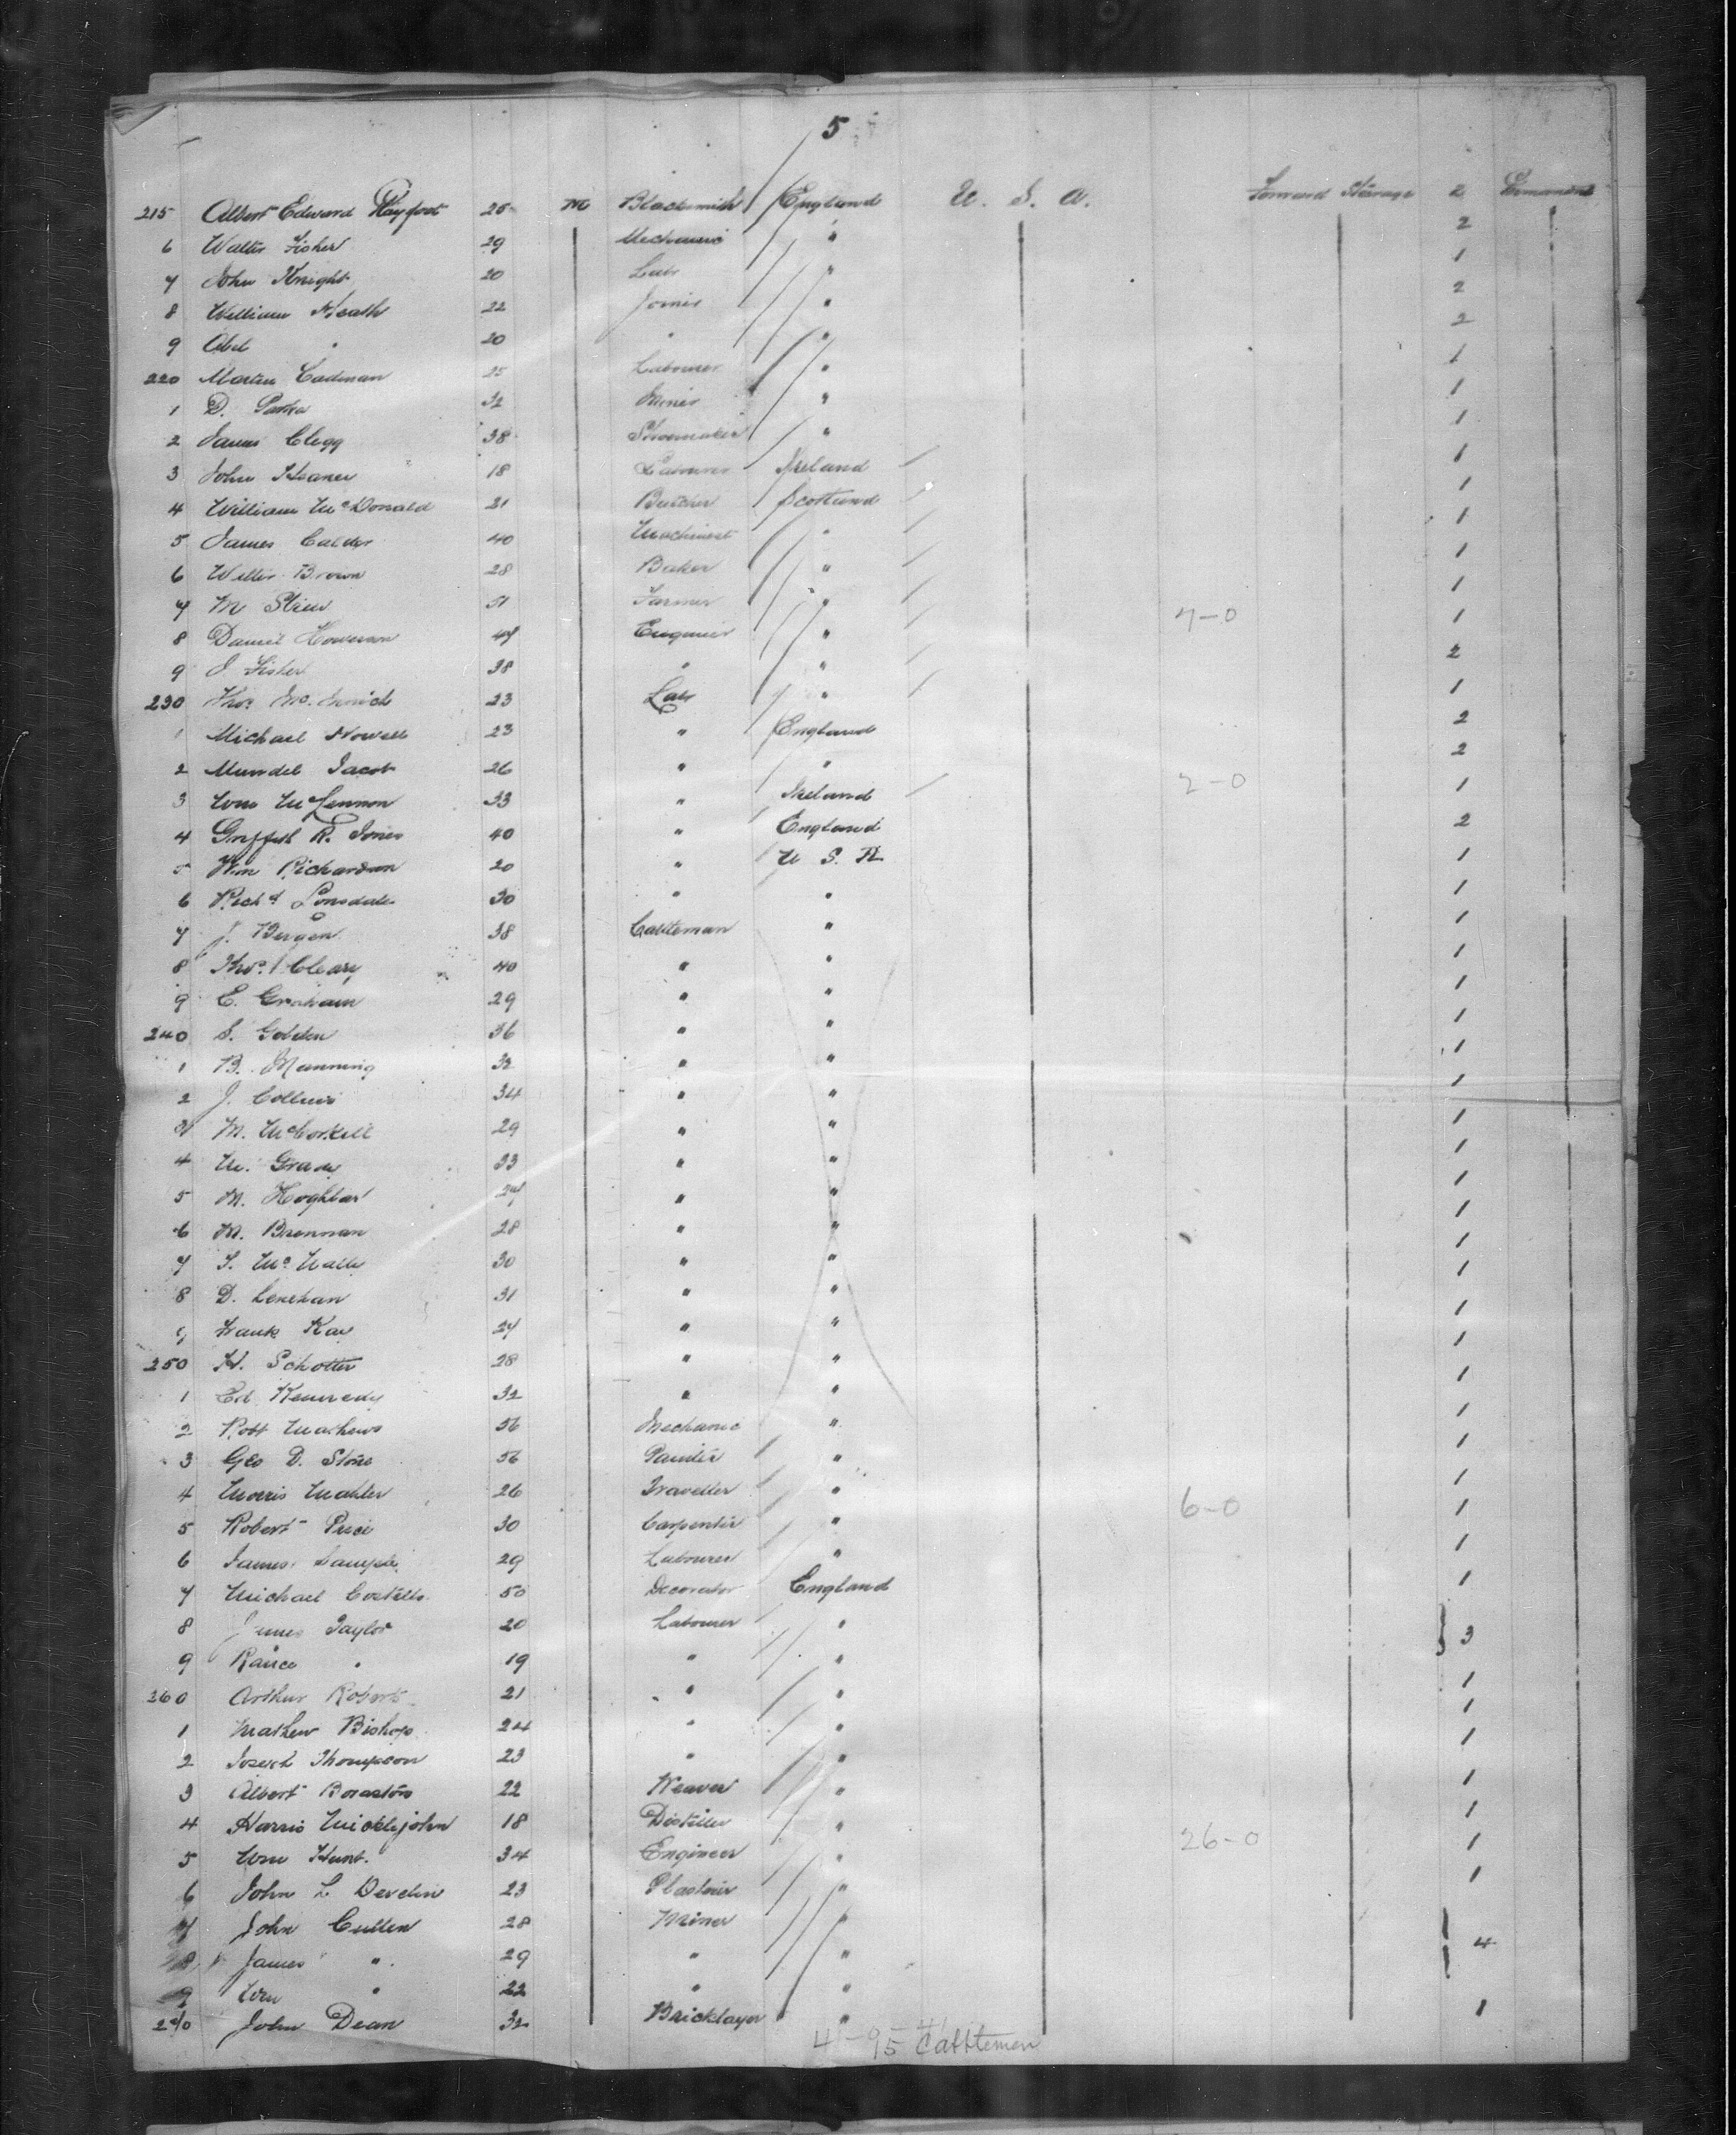 5
215 Albert Edward Playfoot 25 M Blacksmith England U. S. A. Forward Steerage 2 Permanent
6 Walter Fisher 29 Mechanic " 2
7 John Knight 20 Labr " 1
8 William Heath 22 Joiner " 2
9 Abel " 20 " " 2
220 Martin Cadman 25 Labourer " 1
1 D. Parker 32 Miner " 1
2 James Clegg 38 Shoemaker " 1
3 John Heaney 18 Labourer Ireland 1
4 William McDonald 21 Butcher Scotland 1
5 James Calder 40 Machinist " 1
6 Walter Brown 28 Baker " 1
7 M 51 Farmer " 1
8 Daniel 47 Engineer " 7-0 1
9 J Fisher 38 " " 2
230 Thos 23 Labr " 1
1 Michael Howell 23 " England 2
2 Mundel Jacob 26 " " 2
3 Wm McLennon 33 " Ireland 2-0 1
4 Griffith R. Jones 40 " England 2
5 Wm Richardson 20 " U S A 1
6 Richd Lonsdale 30 " " 1
7 J. Bergen 38 Cattleman " 1
8 Thos. Cleary 40 " " 1
9 E. Graham 29 " " 1
240 S. Golden 36 " " 1
1 B. Manning 32 " " 1
2 J. Collins 34 " " 1
3 M. McCorkell 29 " " 1
4 M. Grady 33 " " 1
5 M. 27 " " 1
6 M. Brennan 28 " " 1
7 T. McNally 30 " " 1
8 D. Lenehan 31 " " 1
9 Frank Kay 27 " " 1
250 H. Schotter 28 " " 1
1 Ed. Kennedy 32 " " 1
2 Robt Mathews 56 Mechanic " 1
3 Geo D. Stone 56 Painter " 1
4 Morris Mahler 26 Traveller " 1
5 Robert Price 30 Carpenter " 6-0 1
6 James Sample 29 Labourer " 1
7 Michael Costello 50 Decorator England 1
8 James Taylor 20 Labourer " 3
9 " 19 " "
260 Arthur Roberts 21 " " 1
1 Mathew Bishop 24 " " 1
2 Joseph Thompson 23 " " 1
3 Albert Boraston 22 Weaver " 1
4 Harris Micklejohn 18 Distiller " 1
5 Wm Hunt. 34 Engineer " 26-0 1
6 John L Devlin 23 Plasterer " 1
7 John Cullen 28 Miner "
8 James " 29 " " 4
9 Wm " 22 " "
270 John Dean 32 Bricklayer " 1
41-95 Cattlemen